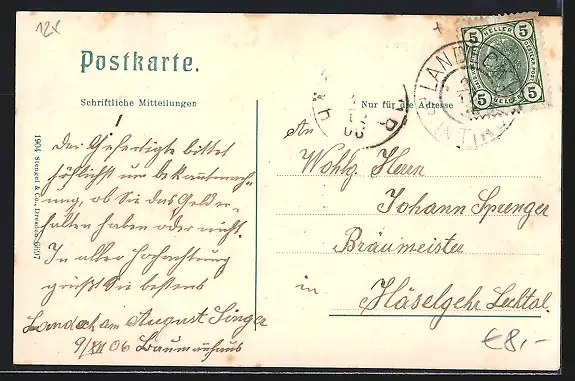 12x
Postkarte.
Schriftliche Mitteilungen
Nur für die Adresse
5 HELLER 5
5 HELLER 5
LANDECK
IN TIROL
1904 Stengel & Co., Dresden
Der Gefertigte bittet
höflichst um Bekanntmach-
ung, ob Sie das Geld er-
halten haben oder nicht.
In aller Hochachtung
grüßt Sie bestens
Landeck am August Singer
9/XII 06 Baumanhaus
An
Wohlg. Herrn
Johann Sprenger
Bräumeister
in Häselgehr Lechtal.
€8,-